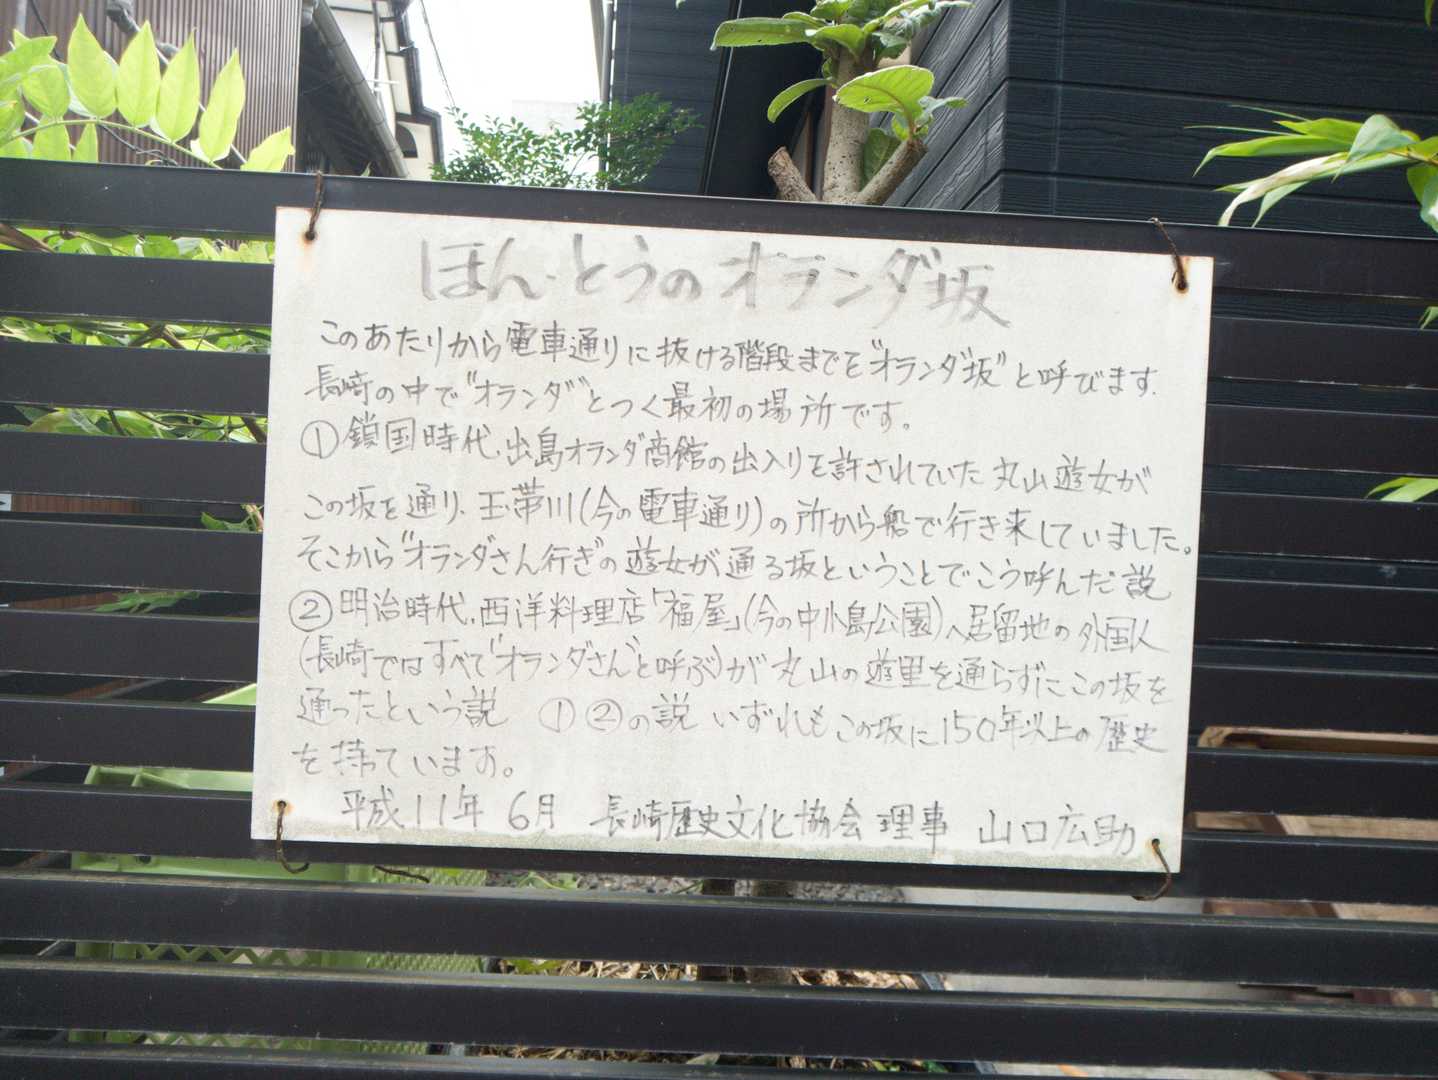 ほんとうのオランダ坂
このあたりから電車通りに抜ける階段までを"オランダ坂"と呼びます.
長崎の中で"オランダ"とつく最初の場所です。
①鎖国時代、出島オランダ商館の出入りを許されていた丸山遊女が
この坂を通り、玉帯川(今の電車通り)の所から船で行き来していました。
そこから"オランダさん行ぎの遊女が通る坂ということでこう呼んだ説
②明治時代、西洋料理店「福屋」(今の中小島公園)へ居留地の外国人
(長崎ではすべて"オランダさん"と呼ぶ)が丸山の遊里を通らずにこの坂を
通ったという説 ①②の説いずれもこの坂に150年以上の歴史
を持っています。
平成11年 6月 長崎歴史文化協会理事 山口広助